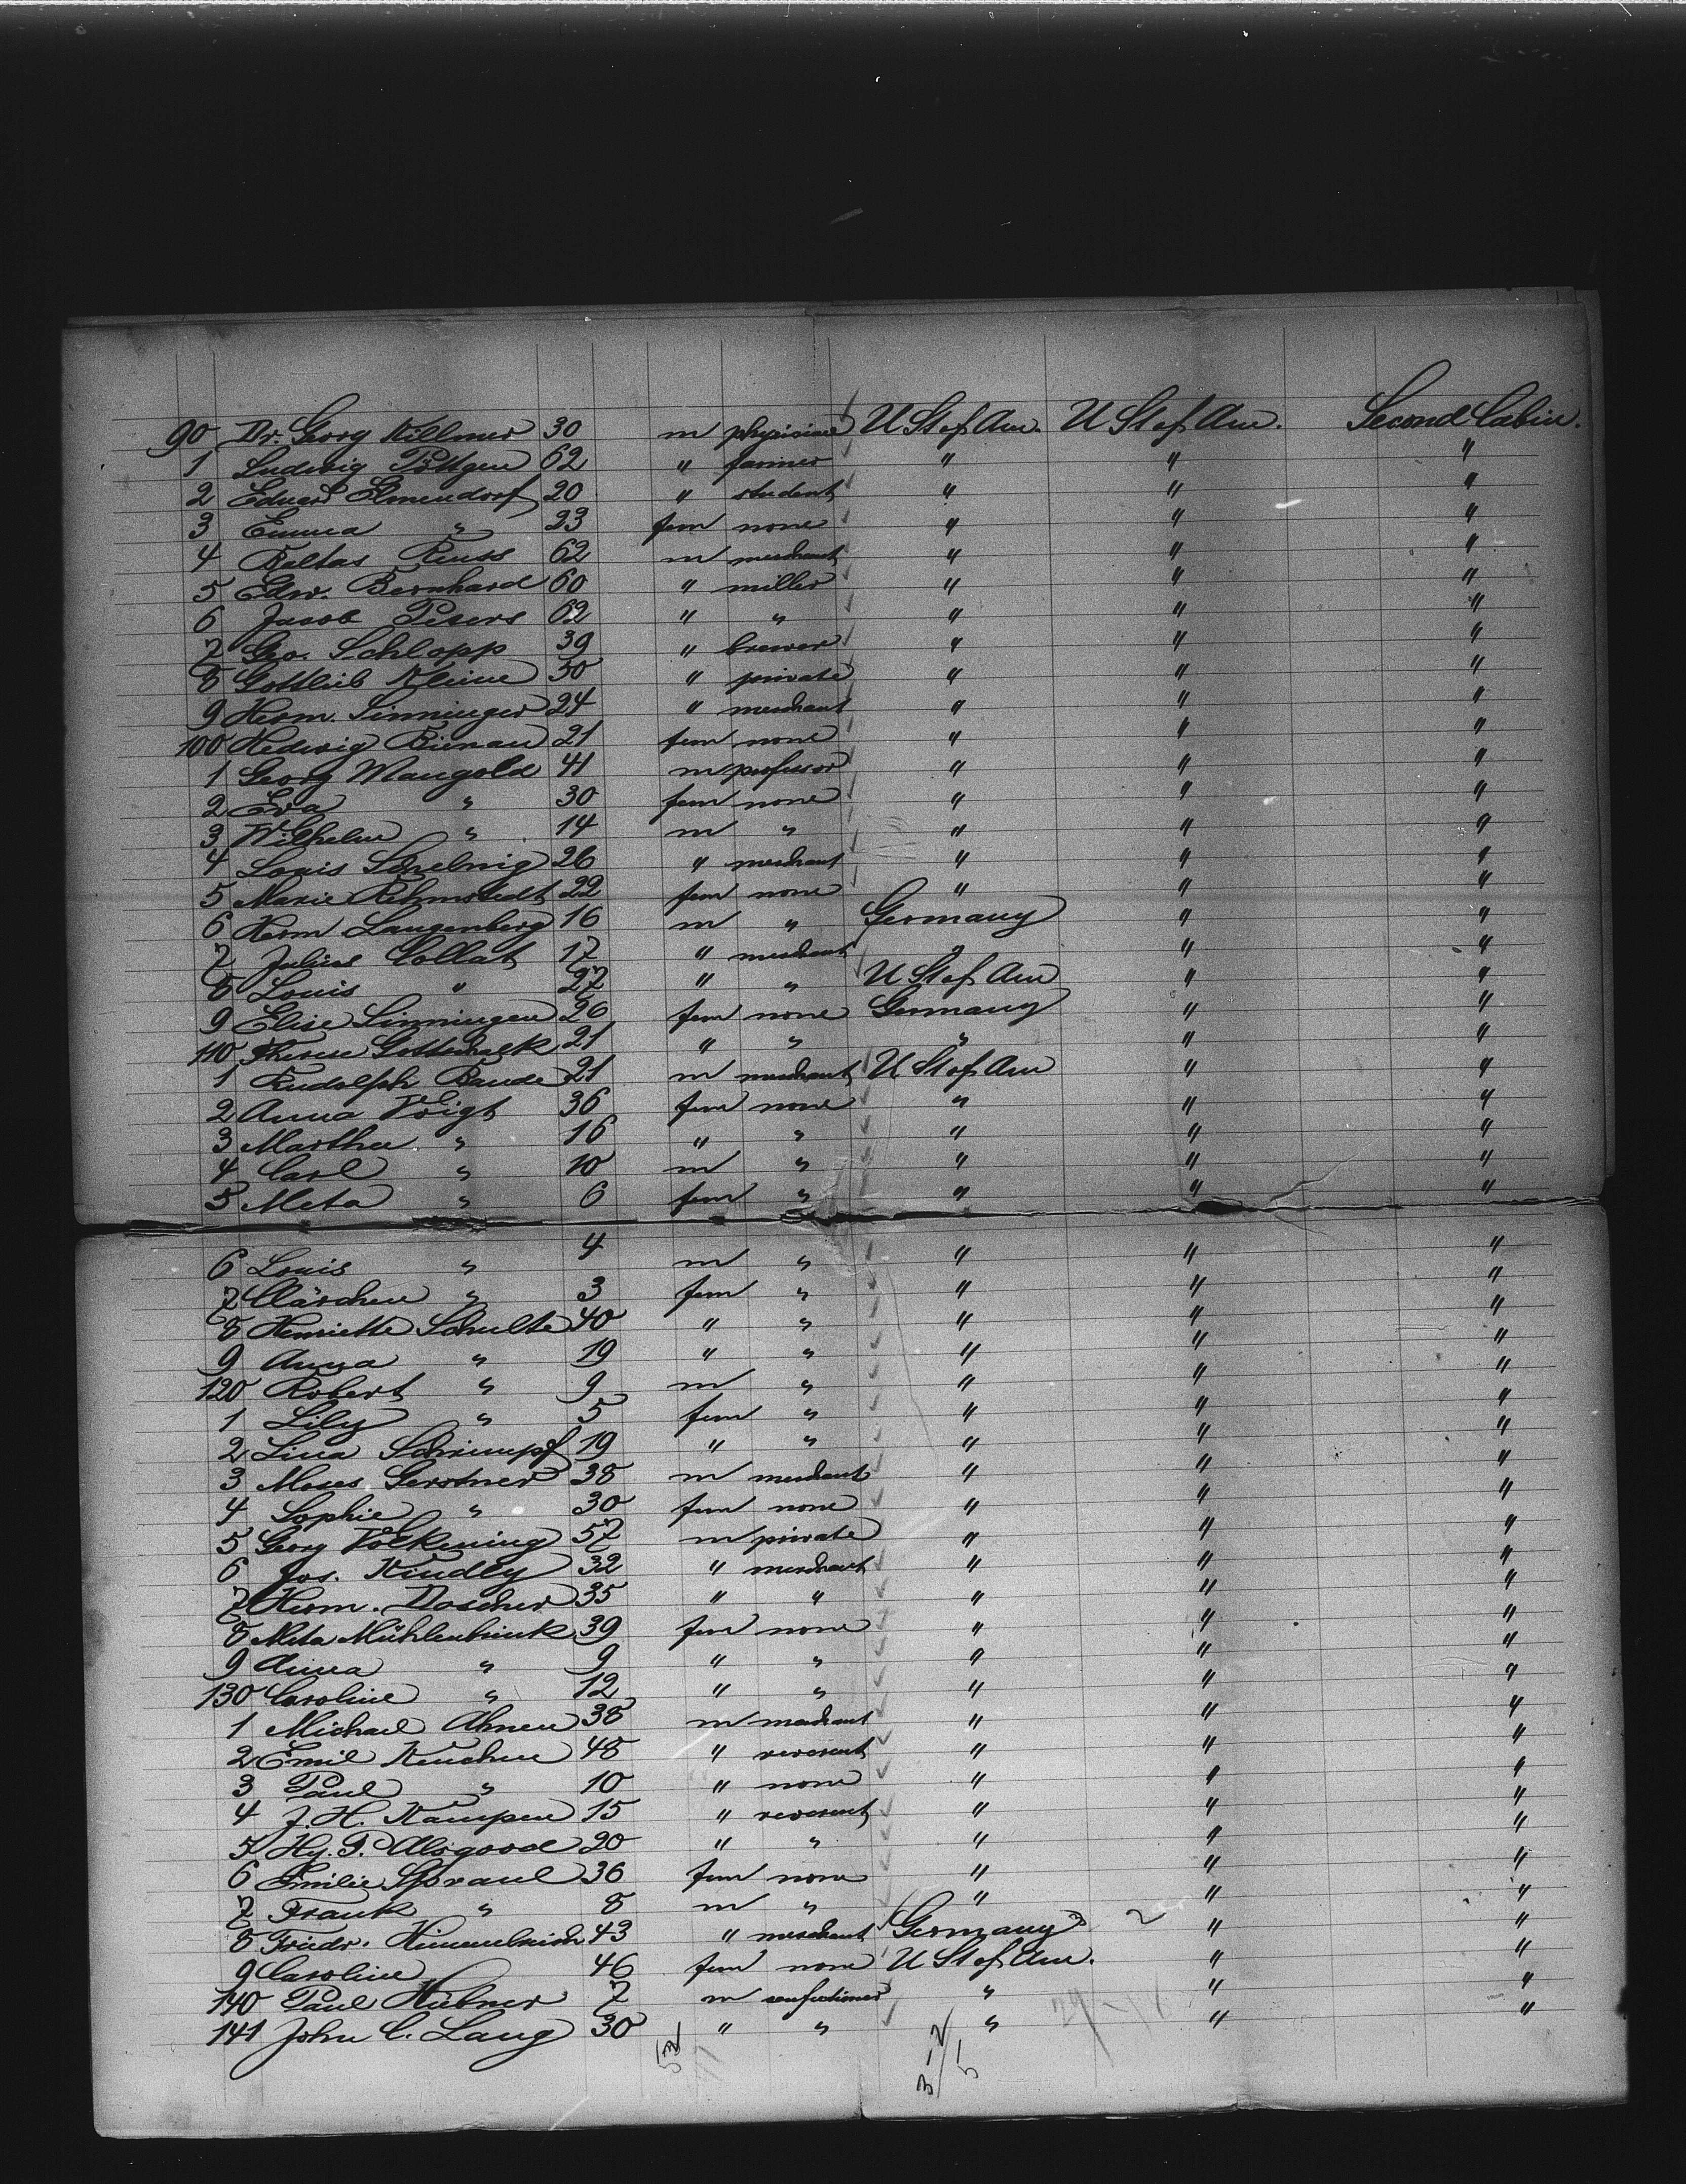 90 Dr. Georg Killmer 30 m physician U St of Am. U St of Am. Second Cabin.
1 Ludwig Pöttgen 62 " farmer " " "
2 Eduard Elmendorf 20 " student " " "
3 Emma " 23 fem none " " "
4 Baltas Reuss 62 m merchant " " "
5 Edw. Bernhard 60 " miller " " "
6 Jacob Peters 62 " " " " "
7 Geo. Schlopp 39 " brewer " " "
8 Gottlieb Kleine 50 " private " " "
9 Herm. Sinninger 24 " merchant " " "
100 Hedwig Bienau 21 fem none " " "
1 Georg Mangold 41 m professor " " "
2 Eva " 30 fem none " " "
3 Wilhelm " 14 m " " " "
4 Louis Schelnig 26 " merchant " " "
5 Marie Rehmstedt 22 fem none " " "
6 Herm Langenberg 16 m " Germany " "
7 Julius Collat 17 " merchant " " "
8 Louis " 27 " " U St of Am " "
9 Elise Sinningen 26 fem none Germany " "
110 Therese Gottschalk 21 " " " " "
1 Rudolph Baude 21 m merchant U St of Am " "
2 Anna Voigt 36 fem none " " "
3 Martha " 16 " " " " "
4 Carl " 10 m " " " "
5 Meta " 6 fem " " " "
6 Louis " 4 m " " " "
7 Clärchen " 3 fem " " " "
8 Henriette Schulte 40 " " " " "
9 Anna " 19 " " " " "
120 Robert " 9 m " " " "
1 Lily " 5 fem " " " "
2 Lina Schrimpf 19 " " " " "
3 Moses Gerstner 38 m merchant " " "
4 Sophie " 30 fem none " " "
5 Georg Volkening 57 m private " " "
6 Jos. Kindly 32 " merchant " " "
7 Herm. Doscher 35 " " " " "
8 Meta Mühlenbrink 39 fem none " " "
9 Anna " 9 " " " " "
130 Caroline " 12 " " " " "
1 Michael Ahnen 38 m merchant " " "
2 Emil Keuchen 48 " reverent " " "
3 Paul " 10 " none " " "
4 J. H. Kampen 15 " reverent " " "
5 Hy. P. Alsgood 20 " " " " "
6 Emilie Spraul 36 fem none " " "
7 Frank " 8 m " " " "
8 Friedr. Himmelreich 43 " merchant Germany 2 " "
9 Caroline 46 fem none U St of Am. " "
140 Paul Hübner 7 m confectioner " " "
141 John C. Lang 30 " " " " "